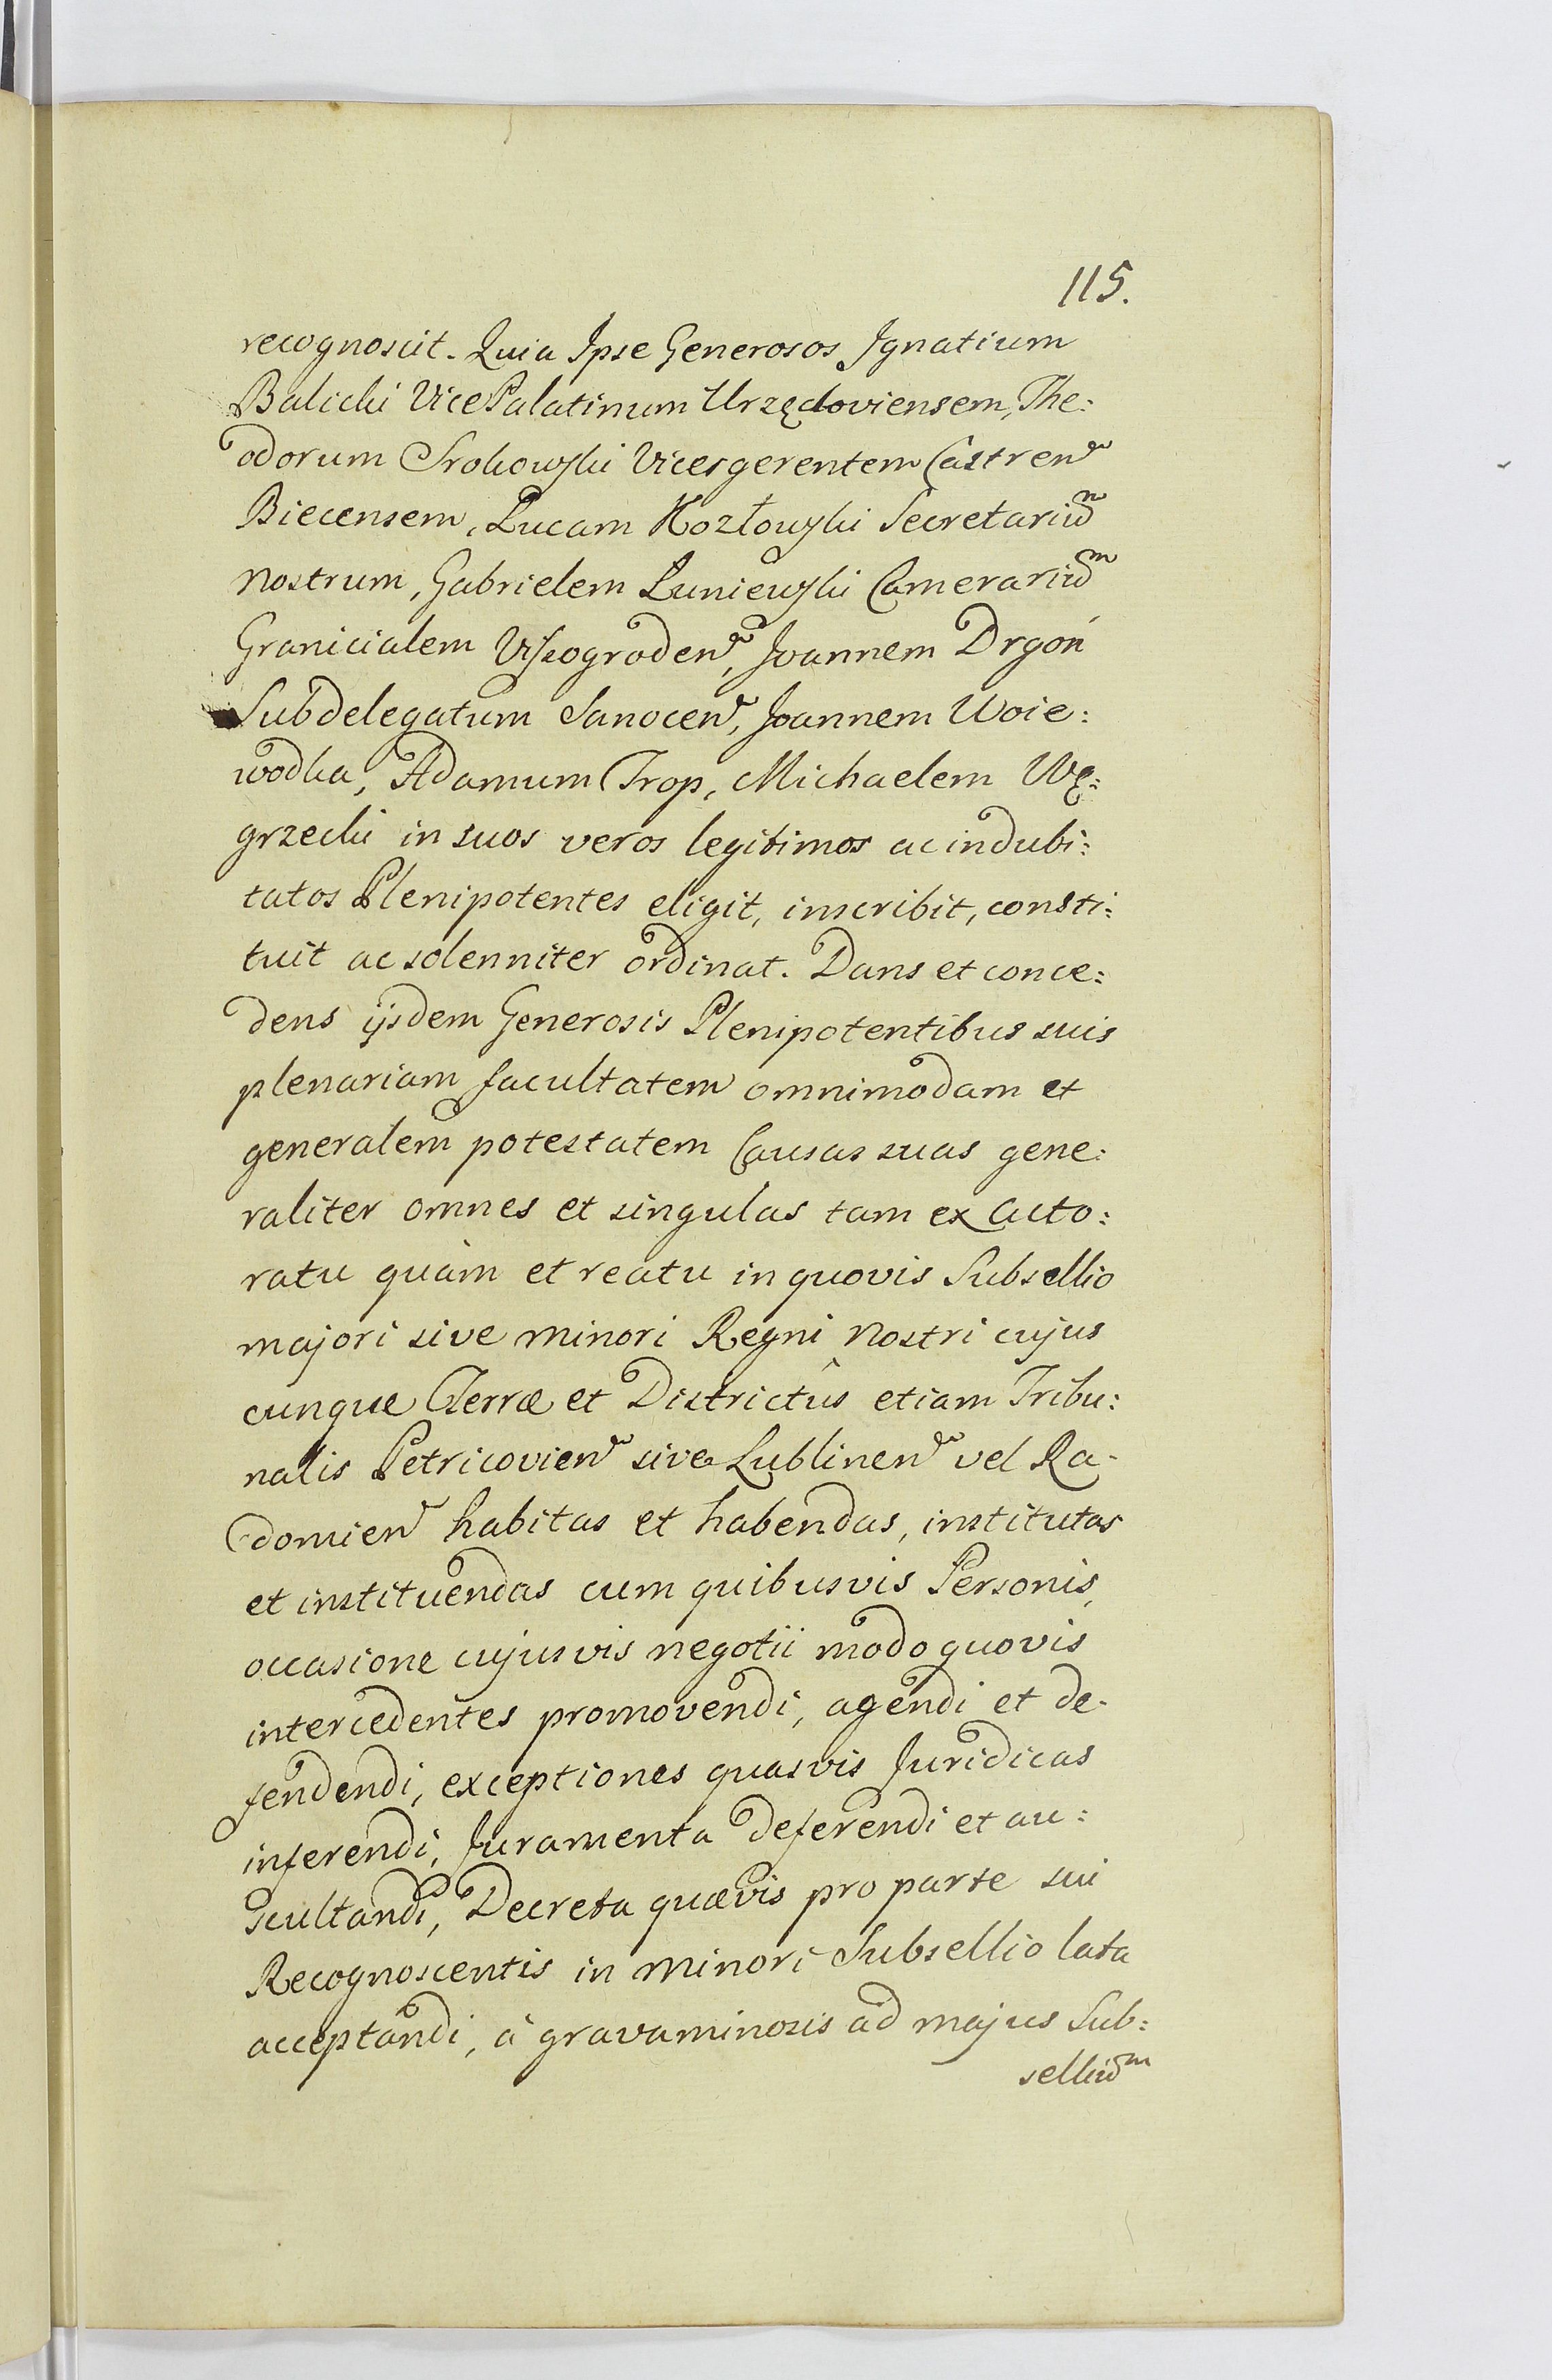 115.
recognoscit. Quia Ipse Generosos Ignatium
Balicki Vice Palatinum Urzędoviensem, The:
odorum Srokowski Vicesgerentem Castren
Biecensem, Lucam Kozłowski Secretariu͞m
Nostrum, Gabrielem Łuniewski Camerariu͞m
Granicialem Viszogroden, Joannem Drgoń
Subdelegatum Sanocen, Joannem Woie:
wodka, Adamum Trop, Michaelem Wę:
grzecki in suos veros legitimos ac indubi:
tatos Plenipotentes eligit, inscribit, consti:
tuit ac solenniter ordinat. Dans et conce:
dens ijsdem Generosis Plenipotentibus suis
plenariam facultatem omnimodam et
generalem potestatem Causas suas gene:
raliter omnes et singulas tam ex Acto:
ratu quàm et reatu in quovis Subsellio
majori sive minori Regni Nostri cujus
cunque Terræ et Districtûs etiam Tribu:
nalis Petricovien sive Lublinen vel Ra-
domien habitas et habendas, institutas
et instituendas cum quibusvis Personis,
occasione cujusvis negotii modo quovis
intercedentes promovendi, agendi et de-
fendendi, exceptiones quasvis Juridicas
inferendi, Juramenta deferendi et au:
scultandi, Decreta quævis pro parte sui
Recognoscentis in minori Subsellio lata
acceptandi, à gravaminosis ad majus Sub:
selliu͞m